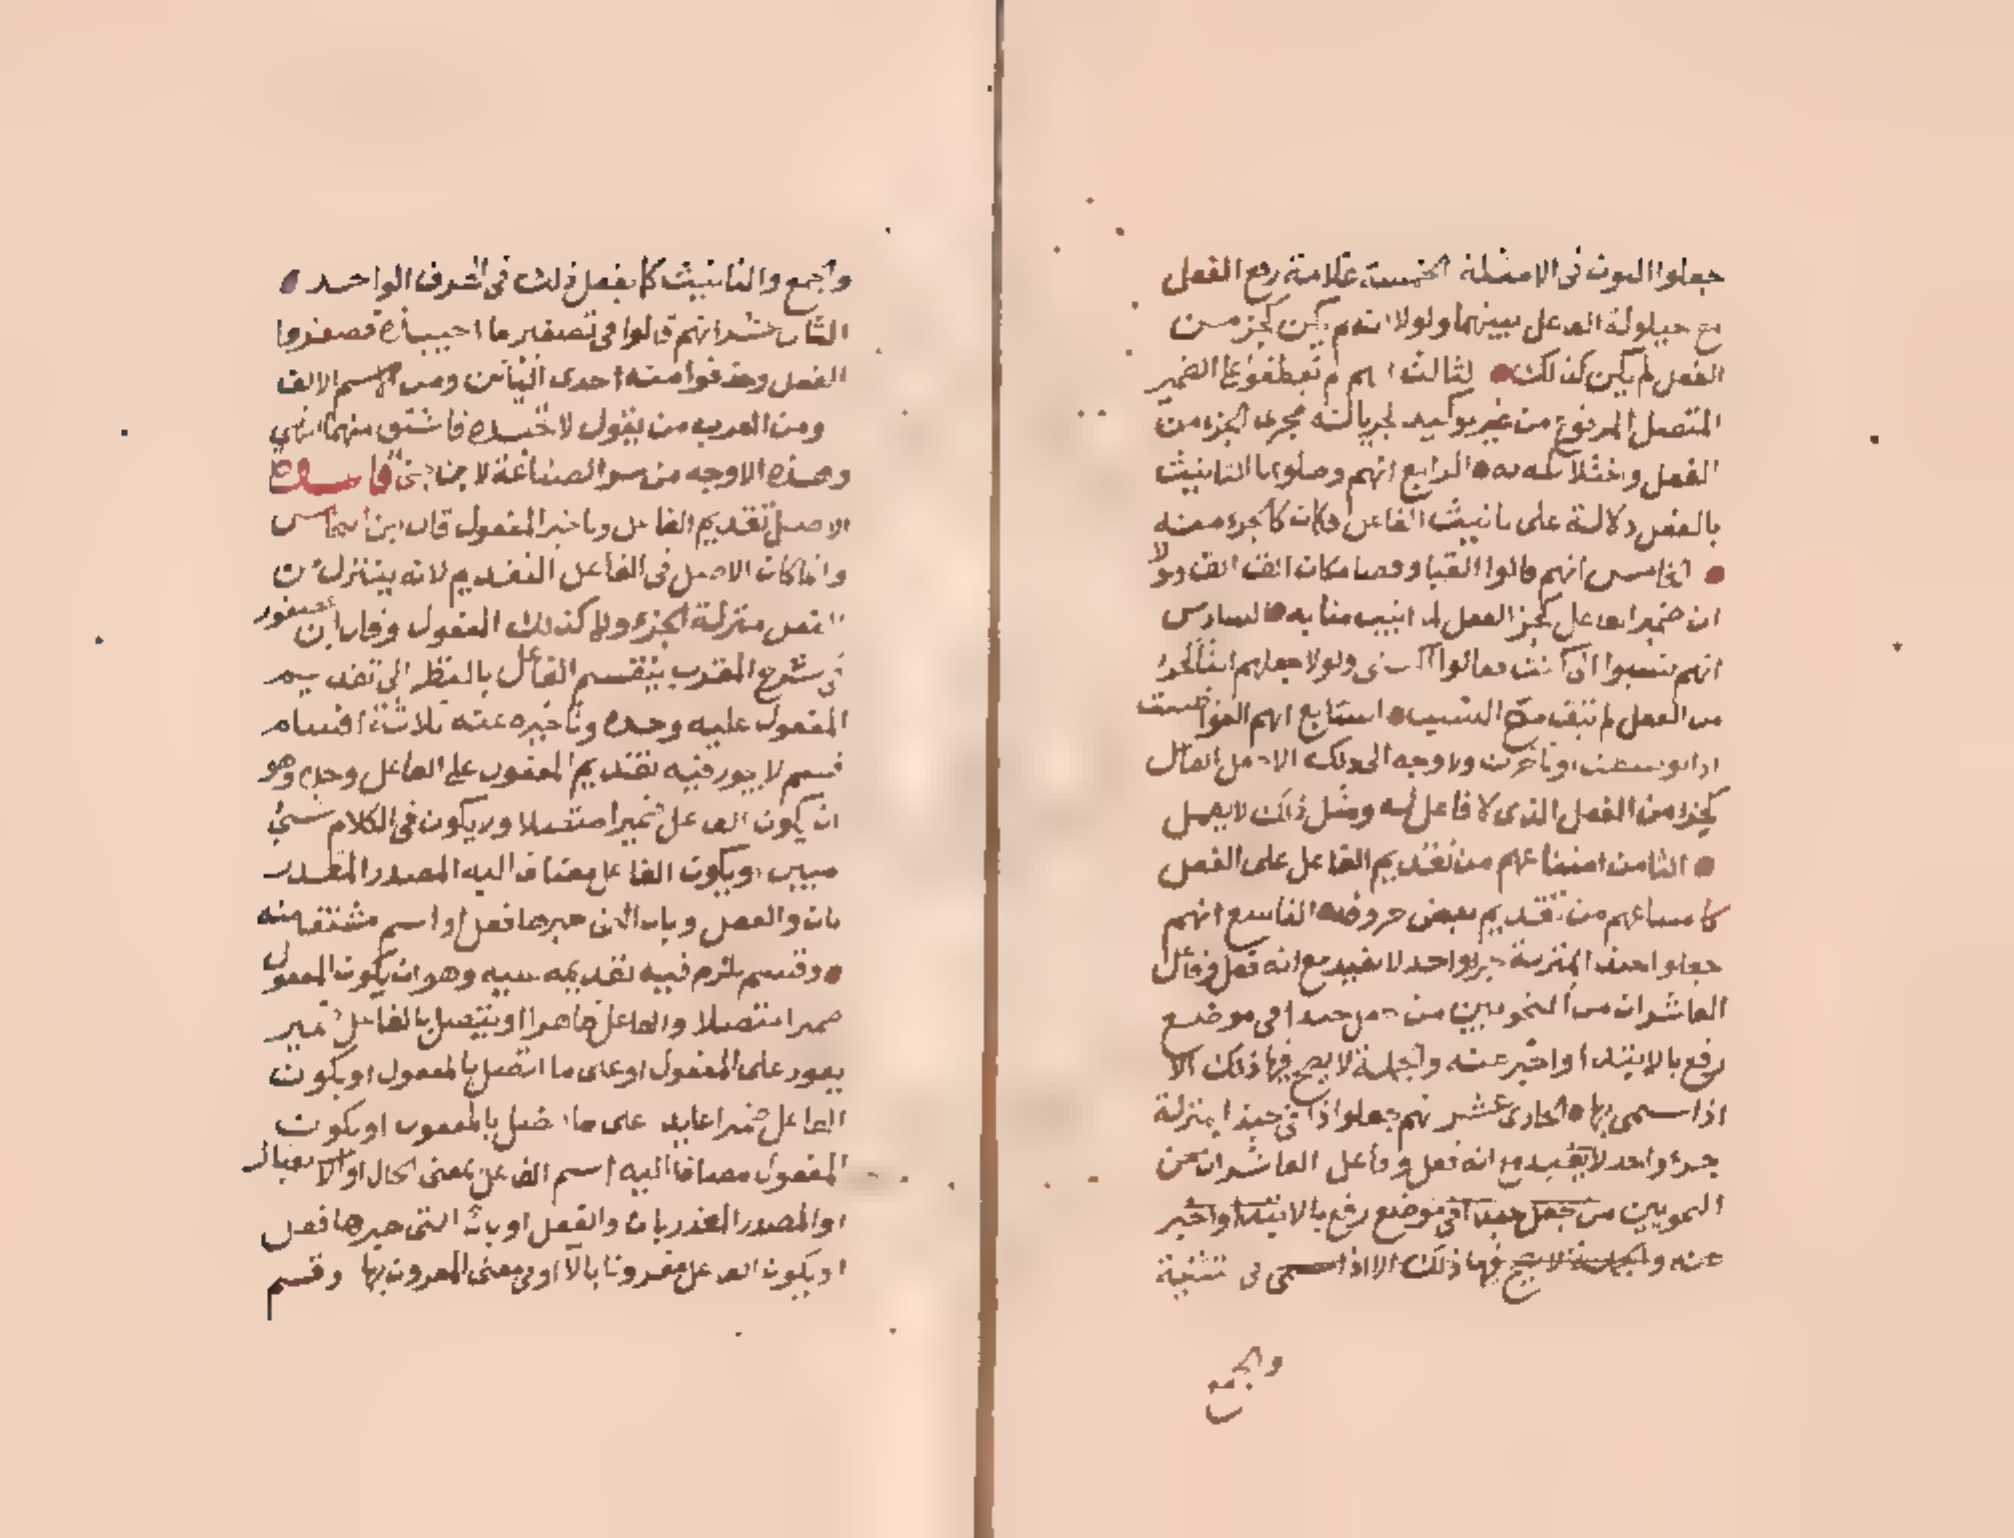 جعلوا النون فى الامثلة الخمسة علامة رفع الفعل
مع حيلولة الفاعل بينهما ولولا انه لم يكن كجزء من
الفعل لم يكن كذلك الثالث انهم لم يعطفوا على الضمير
المتصل المرفوع من غير توكيد لجريانه مجرى الجزء من
الفعل واختلاطه به الرابع انهم وصلوا تا التانيث
بالفعل دلالة على تانيث الفاعل فكان كالجزء منه
الخامس انهم قالوا القيا وقفا مكان الق الق ولولا
ان ضمير الفاعل كجزء الفعل لما انيب منابه السادس
انهم نسبوا الى كنت فقالوا كنتى ولولا جعلهم التا كجزء
من الفعل لم تبق مع النسب السابع انهم الغوا ظننت
اذا توسطت او تاخرت ولا وجه الى ذلك الا جعل الفاعل
كجزء من الفعل الذى لا فاعل له ومثل ذلك لا يعمل
الثامن امتناعهم من تقديم الفاعل على الفعل
كامتناعهم من تقديم بعض حروفه التاسع انهم
جعلوا حبذا بمنزلة جزء واحد لا يفيد مع انه فعل وفاعل
العاشر ان من النحويين من جعل حبذا فى موضع
رفع بالابتدا واخبر عنه والجملة لا يصح فيها ذلك الا
اذا سمى بها الحادى عشر انهم جعلوا ذا فى حبذا بمنزلة
جزء واحد لا يفيد مع انه فعل وفاعل العاشر ان من
النحويين من جعل حبذا فى موضع رفع بالابتدا واخبر
عنه والجملة لا يصح فيها ذلك الا اذا سمى فى تثنية
والجمع
والجمع والتانيث كما يفعل ذلك فى الحرف الواحد
الثانى عشر انهم قالوا فى تصغير ما احب ما احيبه فصغروا
الفعل وحذفوا منه احدى اليائين ومن الاسم الالف
ومن العرب من يقول لا تحبذه فاشتق منهما انتهى
وهذه الاوجه من سر الصناعة لابن جنى فاصل
الاصل تقديم الفاعل وتاخير المفعول قال ابن النحاس
وانما كان الاصل فى الفاعل التقديم لانه يتنزل من
الفعل منزلة الجزء ولا كذلك المفعول وقال ابن عصفور
فى شرح المقرب ينقسم الفاعل بالنظر الى تقديم
المفعول عليه وحده وتاخيره عنه ثلاثة اقسام
قسم لا يجوز فيه تقديم المفعول على الفاعل وحده وهو
ان يكون الفاعل ضميرا متصلا ولا يكون فى الكلام شئ
مبين او يكون الفاعل مضافا اليه المصدر المقدر
بان والفعل وبان التى خبرها فعل او اسم مشتق منه
وقسم يلزم فيه تقديمه عليه وهو ان يكون المفعول
ضميرا متصلا والفاعل ظاهرا او يتصل بالفاعل ضمير
يعود على المفعول او على ما اتصل بالمفعول او يكون
الفاعل ضميرا عايد على ما اتصل بالمفعول او يكون
المفعول مضافا اليه اسم الفاعل بمعنى الحال او الاستقبال
او المصدر المقدر بان والفعل او بان التى خبرها فعل
او يكون الفاعل مقرونا بالا او فى معنى المقرون بها وقسم